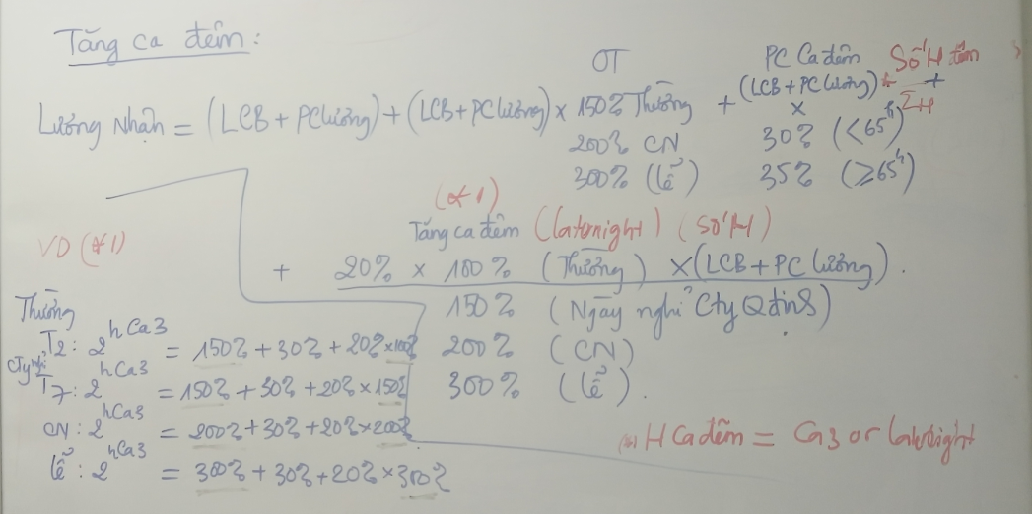 Tăng ca đêm:
OT PC Ca đêm Số H đêm
Lương Nhận = (LCB + PC lương) + (LCB + PC lương) × 150% Thường + (LCB + PC lương) × 30% (<65h)
200% CN 35% (≥65h)
300% (lễ)
(*1)
Tăng ca đêm (laternight) (Số H)
+ 20% × 100% (Thường) × (LCB + PC lương).
150% (Ngày nghỉ Cty Qđịnh)
200% (CN)
300% (lễ).
VD (*1)
Thường
T2: 2hCa3 = 150% + 30% + 20% × 100%
T7: 2hCa3 = 150% + 30% + 20% × 150%
CN: 2hCa3 = 200% + 30% + 20% × 200%
lễ: 2hCa3 = 300% + 30% + 20% × 300%
H Ca đêm = Ca3 or laternight